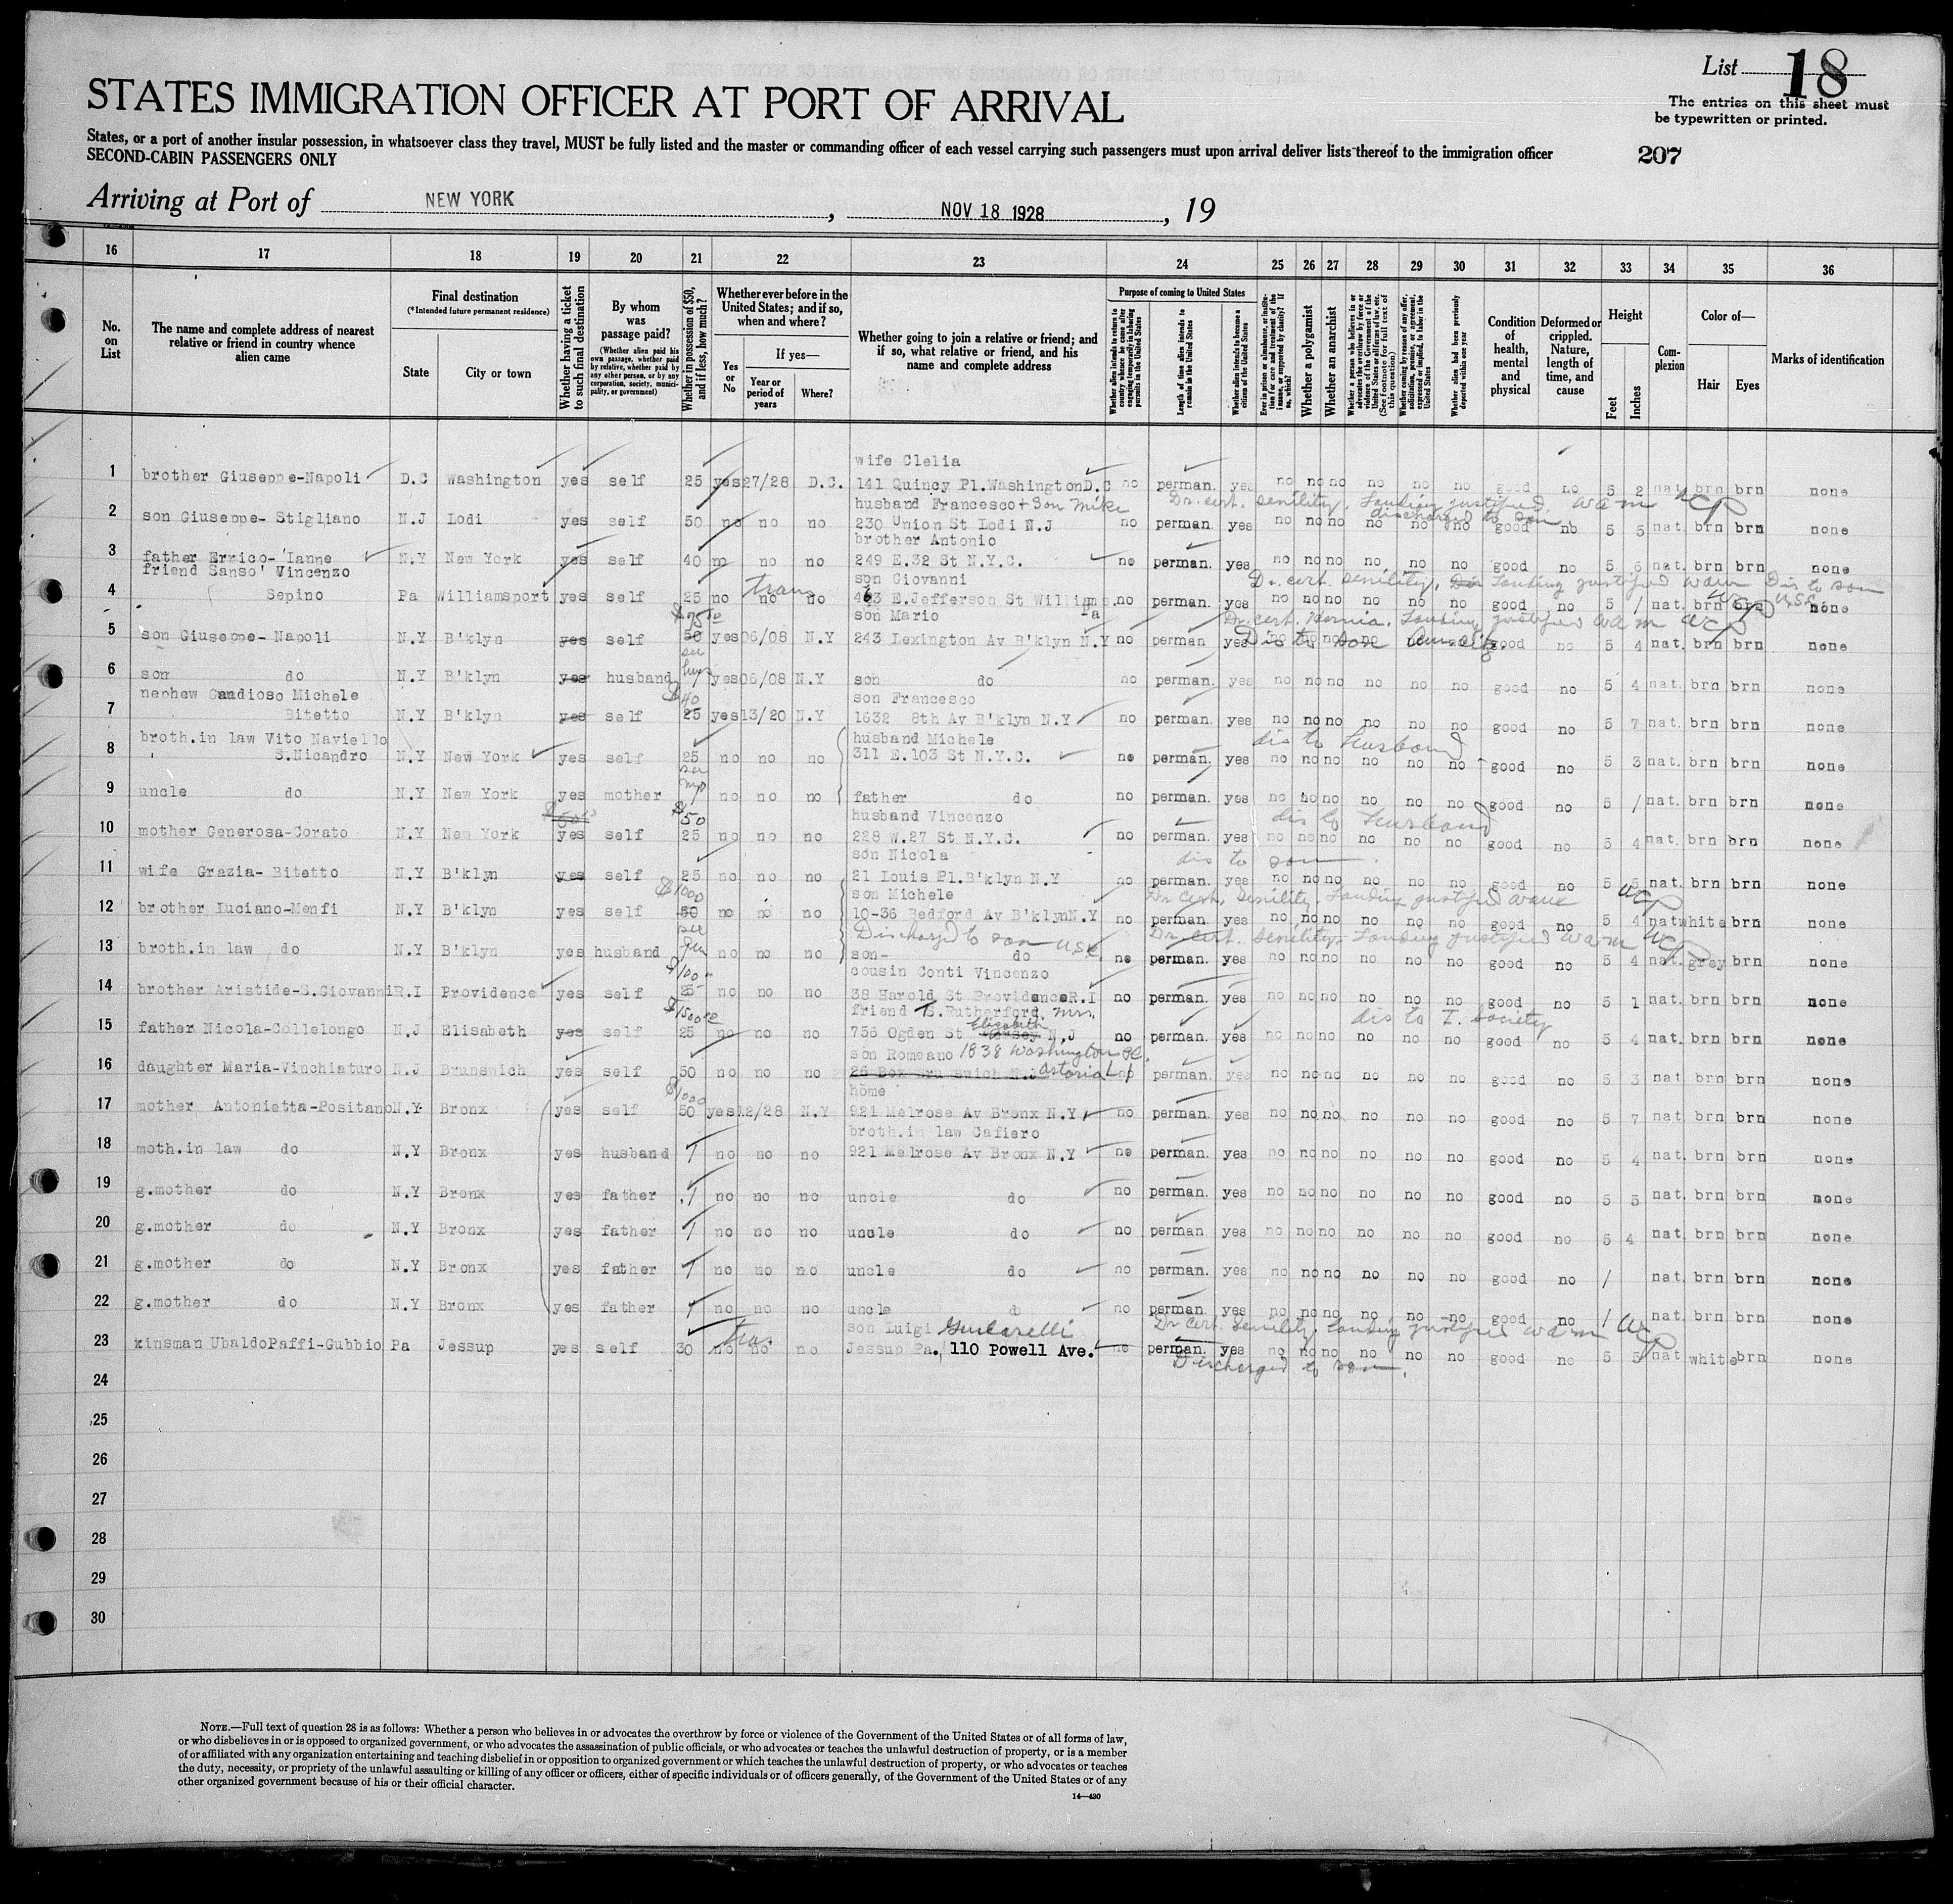 List 18
The entries on this sheet must
be typewritten or printed.
STATES IMMIGRATION OFFICER AT PORT OF ARRIVAL
States, or a port of another insular possession, in whatsoever class they travel, MUST be fully listed and the master or commanding officer of each vessel carrying such passengers must upon arrival deliver lists thereof to the immigration officer
SECOND-CABIN PASSENGERS ONLY
207
Arriving at Port of NEW YORK, NOV 18 1928, 19
16 17 18 19 20 21 22 23 24 25 26 27 28 29 30 31 32 33 34 35 36
No. on List
The name and complete address of nearest relative or friend in country whence alien came
Final destination (*Intended future permanent residence)
State
City or town
Whether having a ticket to such final destination
By whom was passage paid?
(Whether alien paid his own passage, whether paid by relative, whether paid by any other person, or by any corporation, society, municipality, or government)
Whether in possession of $50, and if less, how much?
Whether ever before in the United States; and if so, when and where?
Yes or No
If yes—
Year or period of years
Where?
Whether going to join a relative or friend; and if so, what relative or friend, and his name and complete address
Purpose of coming to United States
Whether alien intends to return to country whence he came after engaging temporarily in laboring pursuits in the United States
Length of time alien intends to remain in the United States
Whether alien intends to become a citizen of the United States
Ever in prison or almshouse, or institution for care and treatment of the insane, or supported by charity? If so, which?
Whether a polygamist
Whether an anarchist
Whether a person who believes in or advocates the overthrow by force or violence of the Government of the United States or all forms of law, etc. (See footnote for full text of this question)
Whether coming by reason of any offer, solicitation, promise, or agreement, expressed or implied, to labor in the United States
Whether alien had been previously deported within one year
Condition of health, mental and physical
Deformed or crippled. Nature, length of time, and cause
Height
Feet
Inches
Complexion
Color of—
Hair
Eyes
Marks of identification
wife Clelia
1 brother Giuseppe-Napoli D.C Washington yes self 25 yes 27/28 D.C. 141 Quincy Pl.Washington D.C no perman. yes no no no no no no good no 5 2 nat. brn brn none
husband Francesco + Son Mike Dr. cert. senility. Landing justified.
discharged to son
2 son Giuseppe- Stigliano N.J Lodi yes self 50 no no no 230 Union St Lodi N.J no perman. yes no no no no no no good no 5 5 nat. brn brn none
brother Antonio
3 father Errico-Ianne N.Y New York yes self 40 no no no 249 E.32 St N.Y.C. no perman. yes no no no no no no good no 5 6 nat. brn brn none
friend Sanso' Vincenzo trans son Giovanni Dr. cert. senility. Landing justified Dis to son
4 Sepino Pa Williamsport yes self 25 no no no 463 E.Jefferson St Williams. Pa no perman. yes no no no no no no good no 5 / nat. brn brn none
son Mario Dr. cert. Hernia. Landing justified
5 son Giuseppe- Napoli N.Y B'klyn yes self 50 yes 06/08 N.Y 243 Lexington Av B'klyn N.Y no perman yes no no no no good no 5 4 nat. brn brn none
Dis to son
6 son do N.Y B'klyn yes husband yes 06/08 N.Y son do no perman. yes no no no no no no good no 5 4 nat. brn brn none
nephew Candioso Michele $40 son Francesco
7 Bitetto N.Y B'klyn yes self 25 yes 13/20 N.Y 1632 8th Av B'klyn N.Y no perman. yes no no no no no no good no 5 7 nat. brn brn none
broth.in law Vito Naviello husband Michele dis to husband
8 S.Nicandro N.Y New York yes self 25 no no no 311 E.103 St N.Y.C. no perman. yes no no no no no no good no 5 3 nat. brn brn none
9 uncle do N.Y New York yes mother no no no father do no perman. yes no no no no no no good no 5 / nat. brn brn none
$50 husband Vincenzo dis to husband
10 mother Generosa-Corato N.Y New York yes self 25 no no no 228 W.27 St N.Y.C. no perman. yes no no no no no no good no 5 4 nat. brn brn none
son Nicola dis to son
11 wife Grazia- Bitetto N.Y B'klyn yes self 25 no no no 21 Louis Pl.B'klyn N.Y no perman. yes no no no no no no good no 5 5 nat. brn brn none
$1000 son Michele Dr cert. senility. Landing justified
12 brother Luciano-Menfi N.Y B'klyn yes self 50 no no no 10-36 Bedford Av B'klyn N.Y no perman. yes no no no no no no good no 5 4 nat white brn none
Discharged to son U.S.C. Dr. cert. senility. Landing justified
13 broth.in law do N.Y B'klyn yes husband no no no son- do no perman. yes no no no no no no good no 5 4 nat. grey brn none
$100 cousin Conti Vincenzo
14 brother Aristide-S.Giovanni R.I Providence yes self 25 no no no 38 Harold St Providence R.I no perman. yes no no no no no no good no 5 1 nat. brn brn none
$1500 friend S.Rutherford, Mrs. dis to I. Society
15 father Nicola-Collelongo N.J Elisabeth yes self 25 no no no 756 Ogden St Elizabeth N.J no perman. yes no no no no no no good no 5 4 nat. brn brn none
son Romeano 1838 Washington
16 daughter Maria-Vinchiaturo N.J Brunswich yes self 50 no no no Astoria L.I. perman. yes no no no no no no good no 5 3 nat brn brn none
$1000 home
17 mother Antonietta-Positano N.Y Bronx yes self 50 yes 12/28 N.Y 921 Melrose Av Bronx N.Y no perman. yes no no no no no no good no 5 7 nat. brn brn none
broth.in law Cafiero
18 moth.in law do N.Y Bronx yes husband / no no no 921 Melrose Av Bronx N.Y no perman. yes no no no no no no good no 5 4 nat. brn brn none
19 g.mother do N.Y Bronx yes father / no no no uncle do no perman. yes no no no no no no good no 5 5 nat. brn brn none
20 g.mother do N.Y Bronx yes father / no no no uncle do no perman. yes no no no no no no good no 5 4 nat. brn brn none
21 g.mother do N.Y Bronx yes father / no no no uncle do no perman. yes no no no no no no good no / nat. brn brn none
22 g.mother do N.Y Bronx yes father / no no no uncle do no perman. yes no no no no no no good no / nat. brn brn none
son Luigi Dr cert. Senility. Landing justified
23 kinsman Ubaldo Paffi-Gubbio Pa Jessup yes self 30 no no no Jessup Pa., 110 Powell Ave. no perman. yes no no no no no no good no 5 5 nat white brn none
Discharged to son.
24
25
26
27
28
29
30
NOTE.—Full text of question 28 is as follows: Whether a person who believes in or advocates the overthrow by force or violence of the Government of the United States or of all forms of law,
or who disbelieves in or is opposed to organized government, or who advocates the assassination of public officials, or who advocates or teaches the unlawful destruction of property, or is a member
of or affiliated with any organization entertaining and teaching disbelief in or opposition to organized government or which teaches the unlawful destruction of property, or who advocates or teaches
the duty, necessity, or propriety of the unlawful assaulting or killing of any officer or officers, either of specific individuals or of officers generally, of the Government of the United States or of any
other organized government because of his or their official character.
14—430